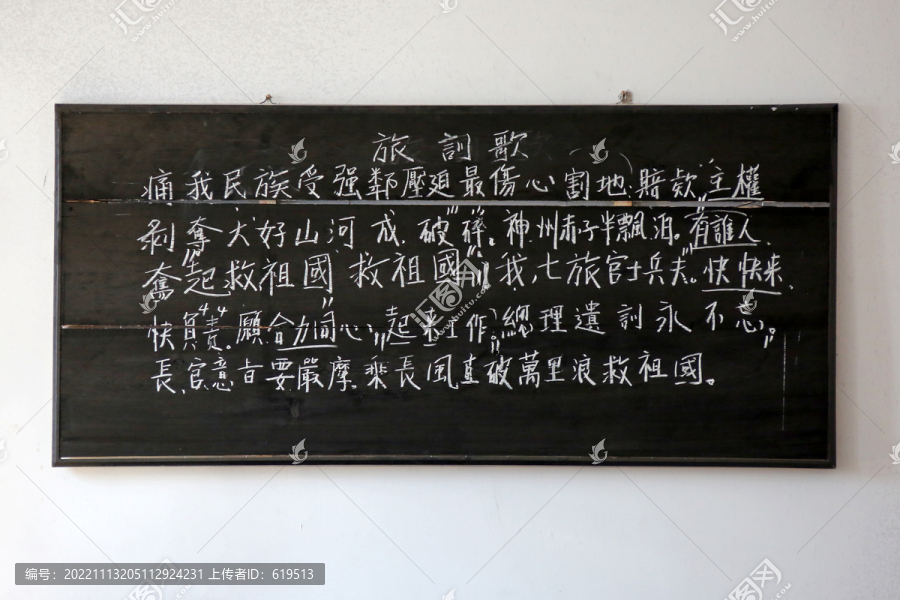 旅訓歌
痛我民族受强鄰壓廹最傷心割地賠欵主權
剥奪大好山河成破碎。神州赤子半飄泊。有誰人
奮起救祖國救祖國我七旅官士兵夫。快快来
快負責。願合力同心起来工作。總理遺訓永不忘。
長官意旨要嚴摩乘長風直破萬里浪救祖國。
编号：20221113205112924231 上传者ID：619513
汇图网
huitu.com